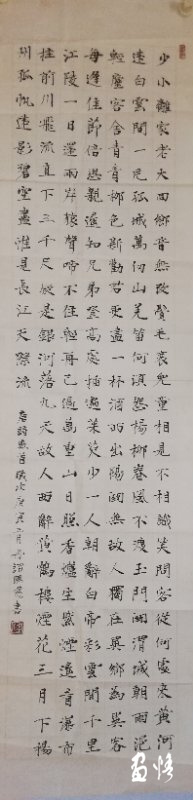 少小離家老大回鄉音無改鬢毛衰兒童相見不相識笑問客從何處來黃河
遠上白雲間一片孤城萬仞山羌笛何須怨楊柳春風不度玉門關渭城朝雨浥
輕塵客舍青青柳色新勸君更盡一杯酒西出陽關無故人獨在異鄉為異客
每逢佳節倍思親遙知兄弟登高處插遍茱萸少一人朝辭白帝彩雲間千里
江陵一日還兩岸猿聲啼不住輕舟已過萬重山日照香爐生紫煙遙看瀑布
掛前川飛流直下三千尺疑是銀河落九天故人西辭黃鶴樓煙花三月下揚
州孤帆遠影碧空盡惟見長江天際流 唐詩數首歲次庚寅 月 書